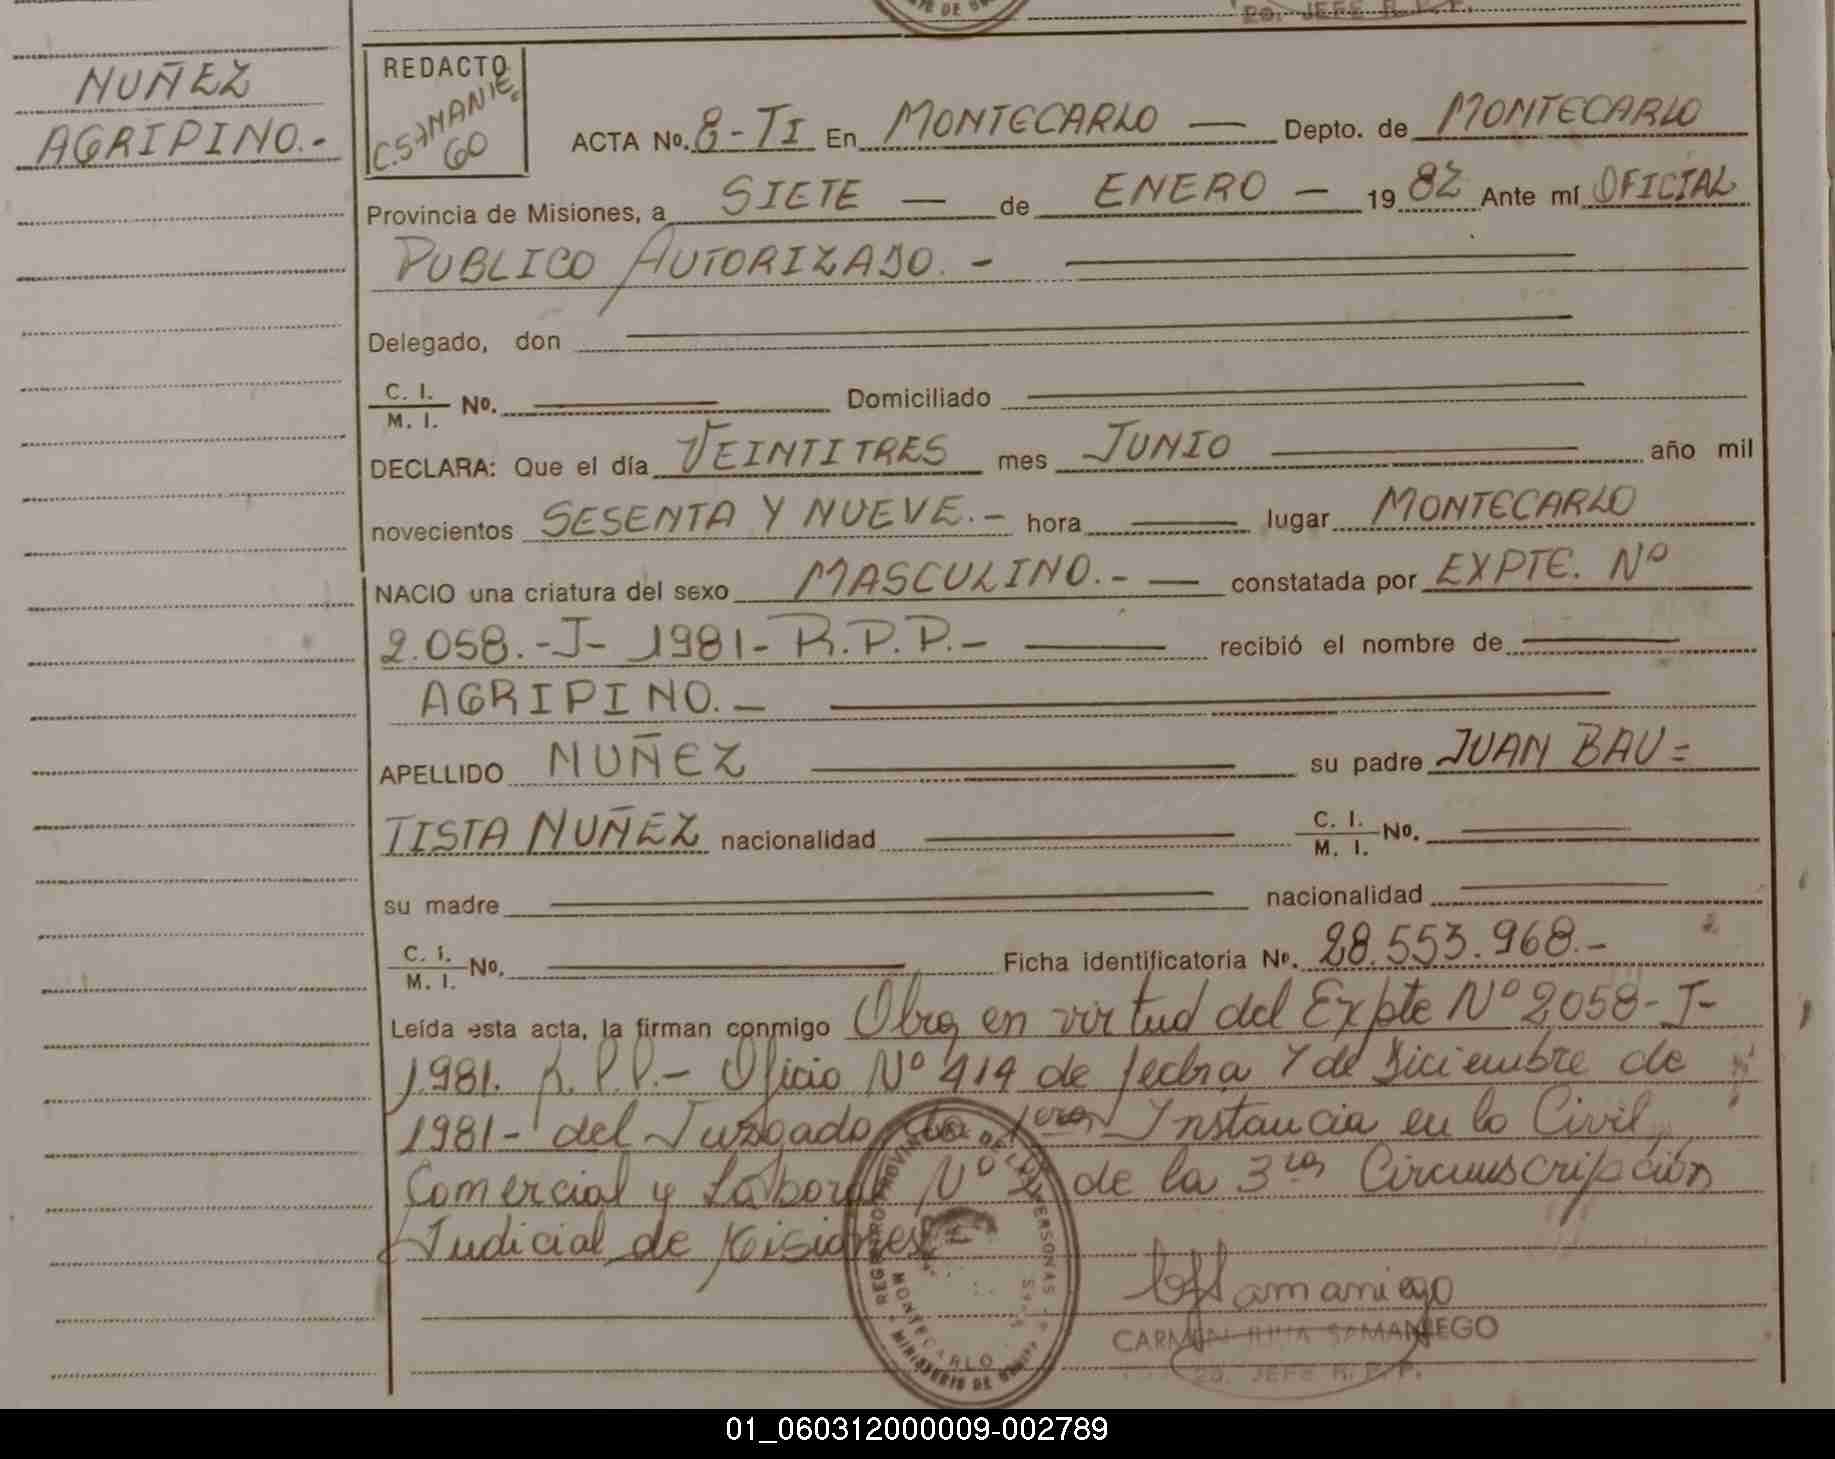 20. JEFE R. P. P.
NUÑEZ
AGRIPINO.-
REDACTO
C. SAMANIE
GO
ACTA No. 8-TI En MONTECARLO — Depto. de MONTECARLO
Provincia de Misiones, a SIETE — de ENERO — 1982 Ante mí OFICIAL
PUBLICO AUTORIZADO. -
Delegado, don
C. I.
M. I. No. Domiciliado
DECLARA: Que el día VEINTITRES mes JUNIO año mil
novecientos SESENTA Y NUEVE.- hora lugar MONTECARLO
NACIO una criatura del sexo MASCULINO.- — constatada por EXPTE. Nº
2.058.-J- 1981- R.P.P.- recibió el nombre de
AGRIPINO.-
APELLIDO NUÑEZ su padre JUAN BAU=
TISTA NUÑEZ nacionalidad C. I.
M. I. No.
su madre nacionalidad
C. I.
M. I. No. Ficha identificatoria No. 28.553.968.-
Leída esta acta, la firman conmigo Obra en virtud del Expte Nº 2058-J-
1981. R.P.P.- Oficio Nº 414 de fecha 7 de Diciembre de
1981- del Juzgado de 1era Instancia en lo Civil,
Comercial y Laboral Nº 2 de la 3ra Circunscripción
Judicial de Misiones
REGISTRO PROVINCIAL DE LAS PERSONAS
MONTECARLO
MINISTERIO DE
CJSamaniego
CARMEN JULIA SAMANIEGO
20. JEFE R. P. P.
01_060312000009-002789